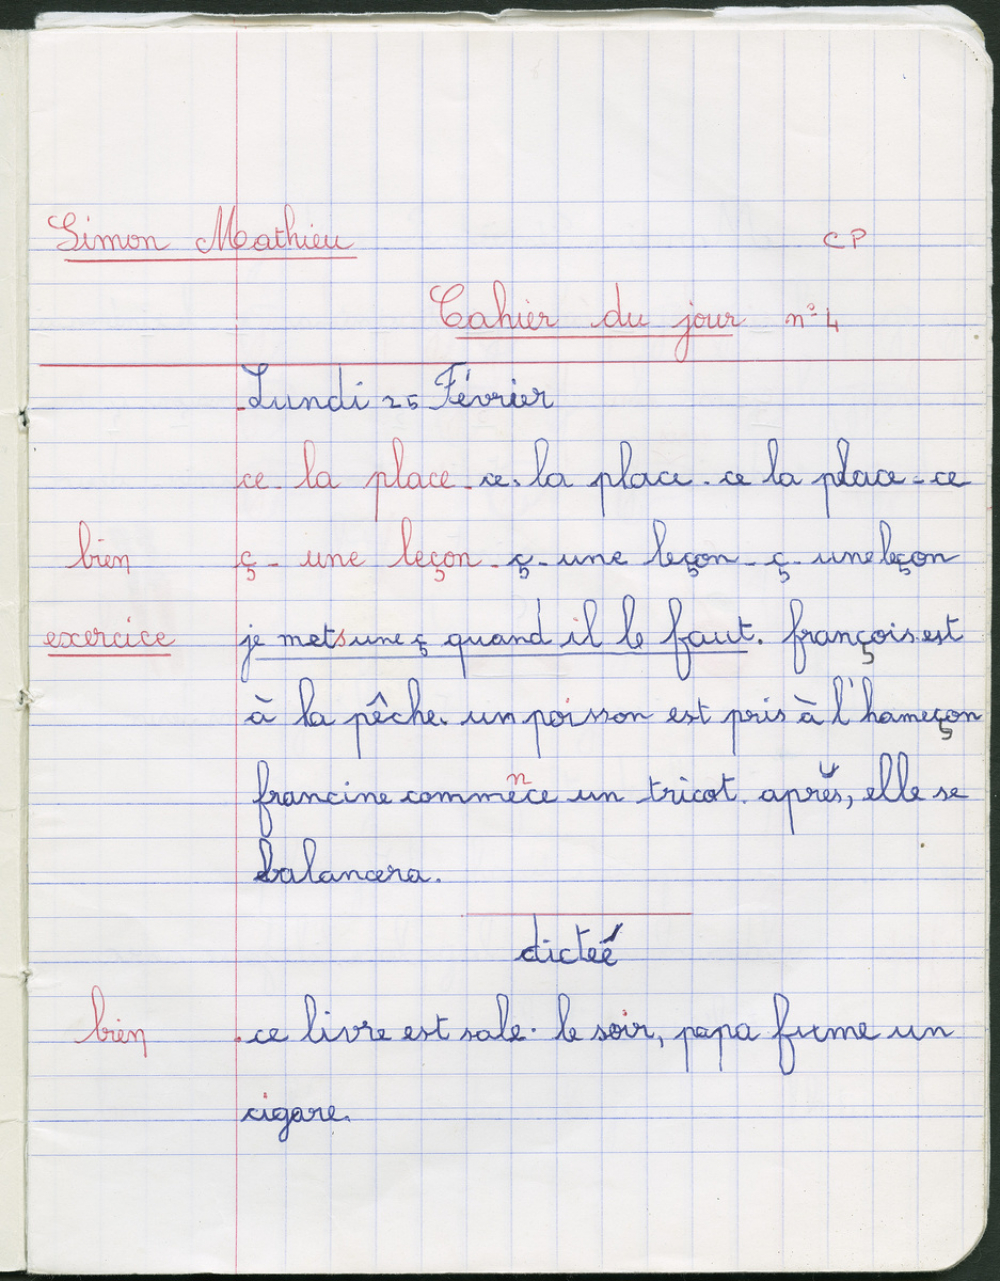 Simon Mathieu CP
Cahier du jour n°4
Lundi 25 Février
ce - la place - ce - la place - ce la place - ce
bien ç - une leçon - ç - une leçon - ç - une leçon
exercice je mets une ç quand il le faut. françois est
à la pêche. un poisson est pris à l'hameçon
n
francine commece un tricot. après, elle se
balancera.
dictée
bien ce livre est sale. le soir, papa fume un
cigare.